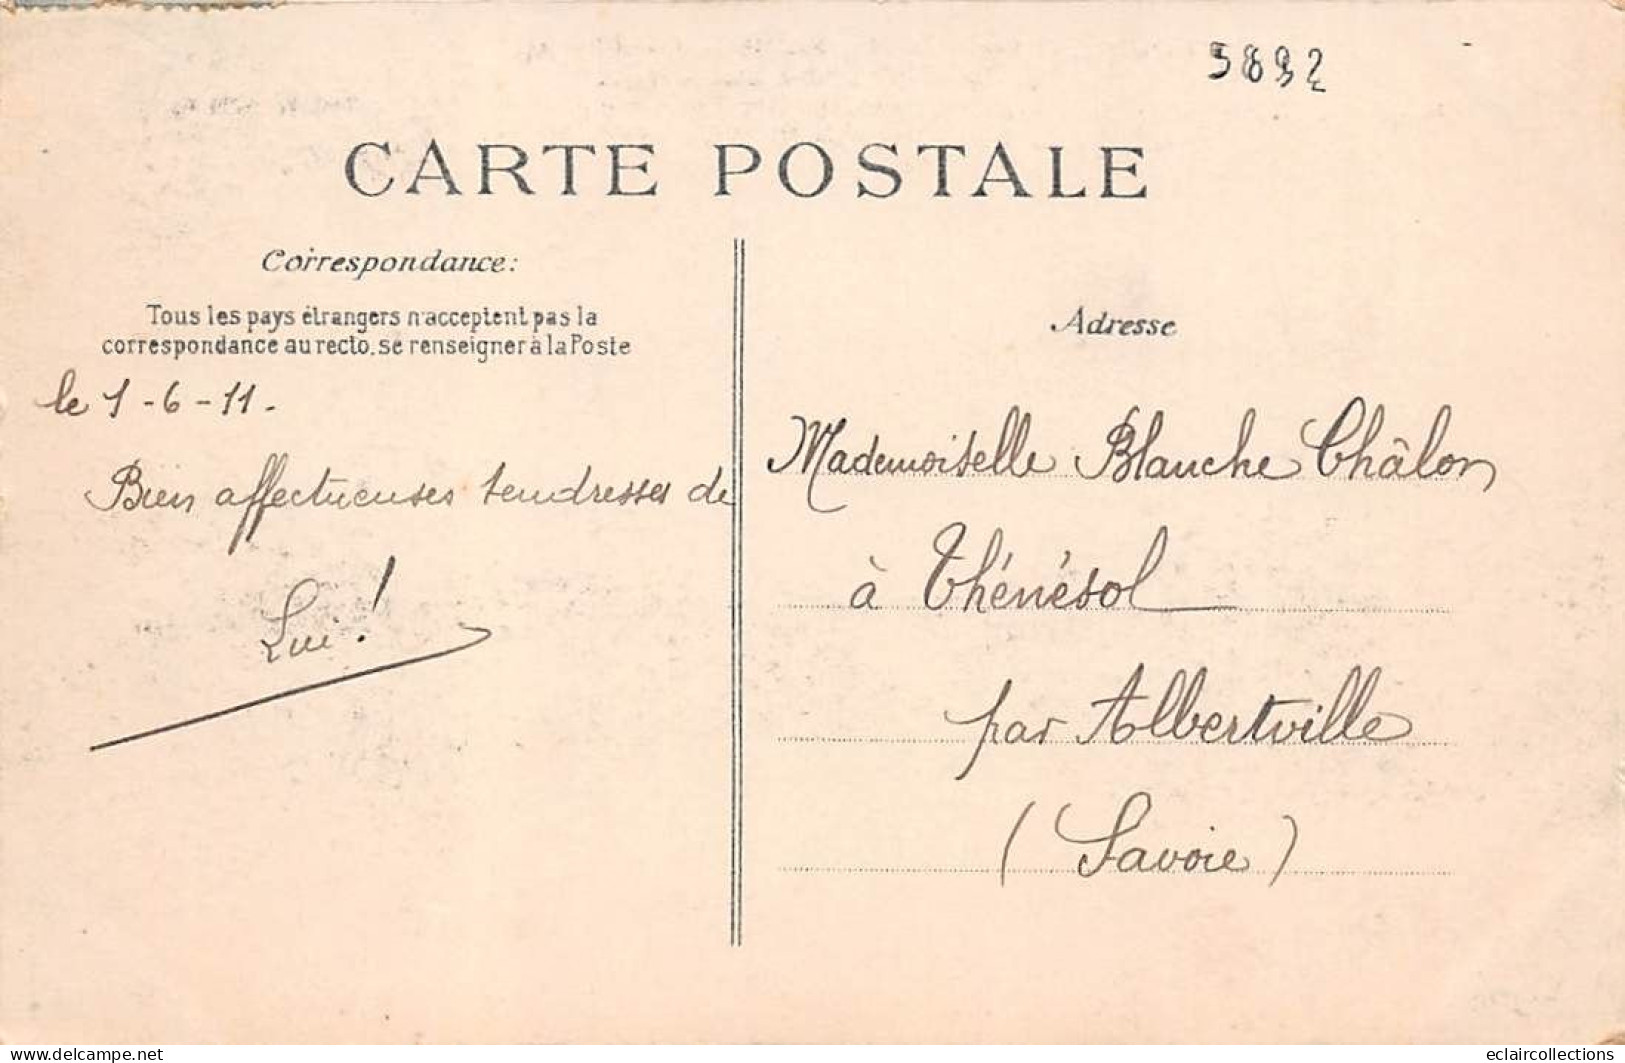 5892
CARTE POSTALE
Correspondance:
Tous les pays étrangers n'acceptent pas la
correspondance au recto. se renseigner à la Poste
le 1-6-11.
Bien affectueuses tendresses de
Lui!
Adresse
Mademoiselle Blanche Châlon
à Thénésol
par Albertville
(Savoie)
www.delcampe.net
eclaircollections